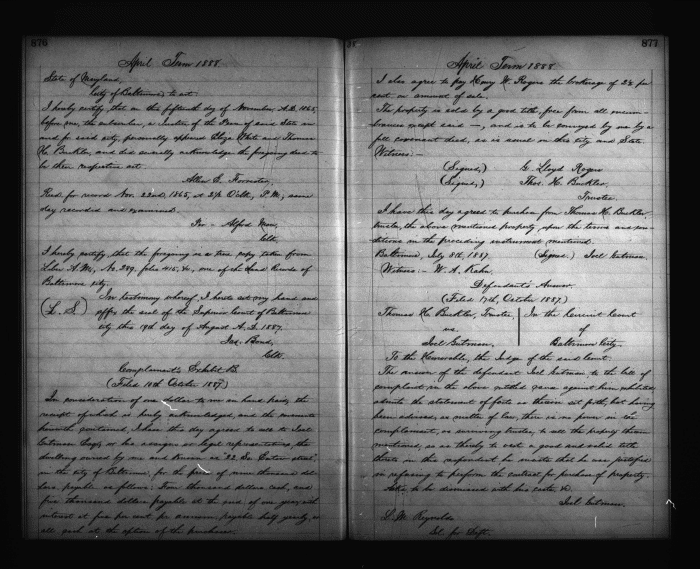 876
April Term 1888
State of Maryland,
City of Baltimore, to wit:
I hereby certify, that on this fifteenth day of November A.D. 1865,
before me, the subscriber, a Justice of the Peace of said State in
and for said city, personally appeared Eliza and Thomas
H. Buckler, and did severally acknowledge the foregoing deed to
be their respective act.
Forrester,
Recd. for record Nov. 22nd 1865, at 2½ O'clk, P.M., same
day recorded and examined.
Per - Alfred
Clk.
I hereby certify, that the foregoing is a true copy taken from
Liber A.M., No. 289, folio 415, &c, one of the Land Records of
Baltimore city.
(L. S.) In testimony whereof, I hereto set my hand and
affix the seal of the Superior Court of Baltimore
city this 19th day of August A.D. 1887.
Jas. Bond,
Clk.
Complainant's Exhibit B.
(Filed 10th October 1887.)
In consideration of one dollar to me in hand paid, the
receipt of which is hereby acknowledged, and the covenants
herein contained, I have this day agreed to sell to Joel
Gutman Esqr, or his assigns or legal representatives, the
dwelling owned by me and known as "22 So. Eutaw street"
in the city of Baltimore, for the price of nine thousand dol-
lars, payable as follows: Four thousand dollars cash, and
five thousand dollars payable at the end of one year, with
interest at five per cent per annum, payable half yearly, or
all cash at the option of the purchaser.
877
April Term 1888
I also agree to pay Henry W. Rogers the brokerage of 2½ per
cent on amount of sale.
The property is sold by a good title, free from all encum-
brances except said —, and is to be conveyed by me by a
full covenant deed, as is usual in this city and State.
Witness:-
(Signed,) G. Lloyd Rogers
(Signed,) Thos. H. Buckler,
Trustee.
I have this day agreed to purchase from Thomas H. Buckler,
trustee, the above mentioned property, upon the terms and con-
ditions in the preceding instrument mentioned.
Baltimore, July 8th, 1887. (Signed.) Joel Gutman.
(Witness:- W. A. Hahn.
Defendant's Answer.
(Filed 17th, October 1887.)
Thomas H. Buckler, Trustee, In the Circuit Court
vs. of
Joel Gutman. Baltimore City.
To the Honorable, the Judge of the said Court:
The answer of the defendant Joel Gutman to the bill of
complaint in the above entitled cause against him exhibited,
admits the statement of facts as therein set forth, but having
been advised, as matter of law, there is no power in the
complainant, as surviving trustee, to sell the property therein
mentioned, so as thereby to vest a good and valid title
thereto in this respondent he insists that he was justified
in refusing to perform the contract for purchase of property.
Asks to be dismissed with his costs, &c.
Joel Gutman.
L. M. Reynolds
Sol. for Deft.